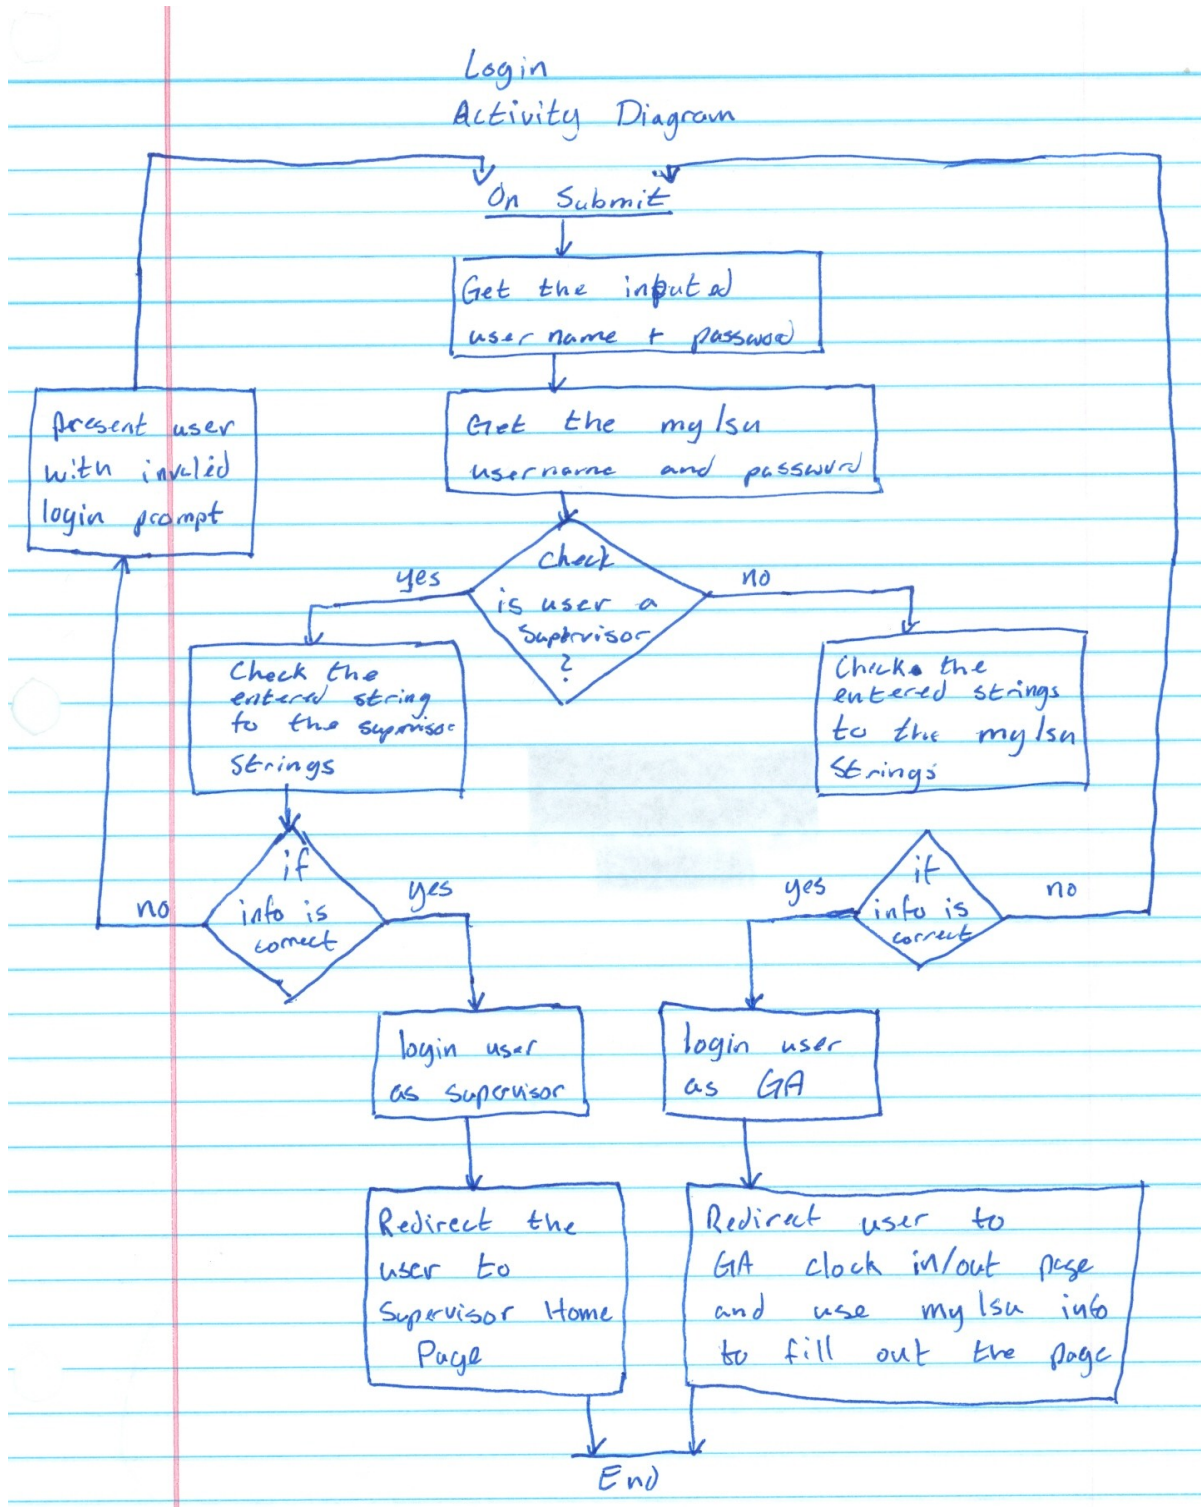 Login
Activity Diagram
On Submit
Get the inputed
username + password
Get the mylsu
username and password
Check
is user a
Supervisor
?
yes
no
present user
with invalid
login prompt
Check the
entered string
to the supervisor
Strings
Check the
entered strings
to the mylsu
Strings
if
info is
correct
no
yes
if
info is
correct
yes
no
login user
as supervisor
login user
as GA
Redirect the
user to
Supervisor Home
Page
Redirect user to
GA clock in/out page
and use mylsu info
to fill out the page
End